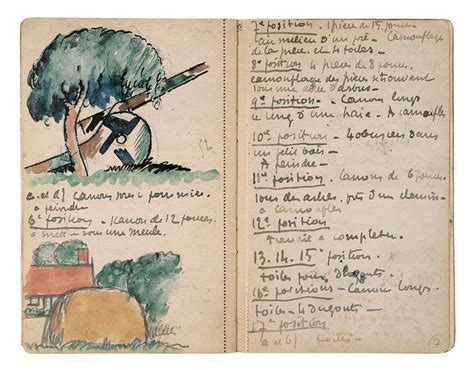 c. et d) Canons sous 2 pommiers.
à peindre
6e position - Canon de 12 pouces.
à mett - sous une meule.
7e position. 1 pièce de 15 pouces.
au milieu d'un pré - Camouflage
de la pièce et 4 toiles.
8e position 4 pièces de 8 pouces.
camouflage des pièces se trouvant
sous une allée d'arbres -
9e position. - Canons longs
le long d'une haie. A camoufler
10e position - 4 obusiers dans
un petit bois -
A peindre -
11e position. Canons de 6 pouces.
sous des arbres, près d'un chemin -
à camoufler
12e position
Travail à completer.
13. 14. 15e position.
toiles pour Dugouts -
16e positions - Canons longs.
toiles - 4 Dugouts -
17e position
a et b) toiles -